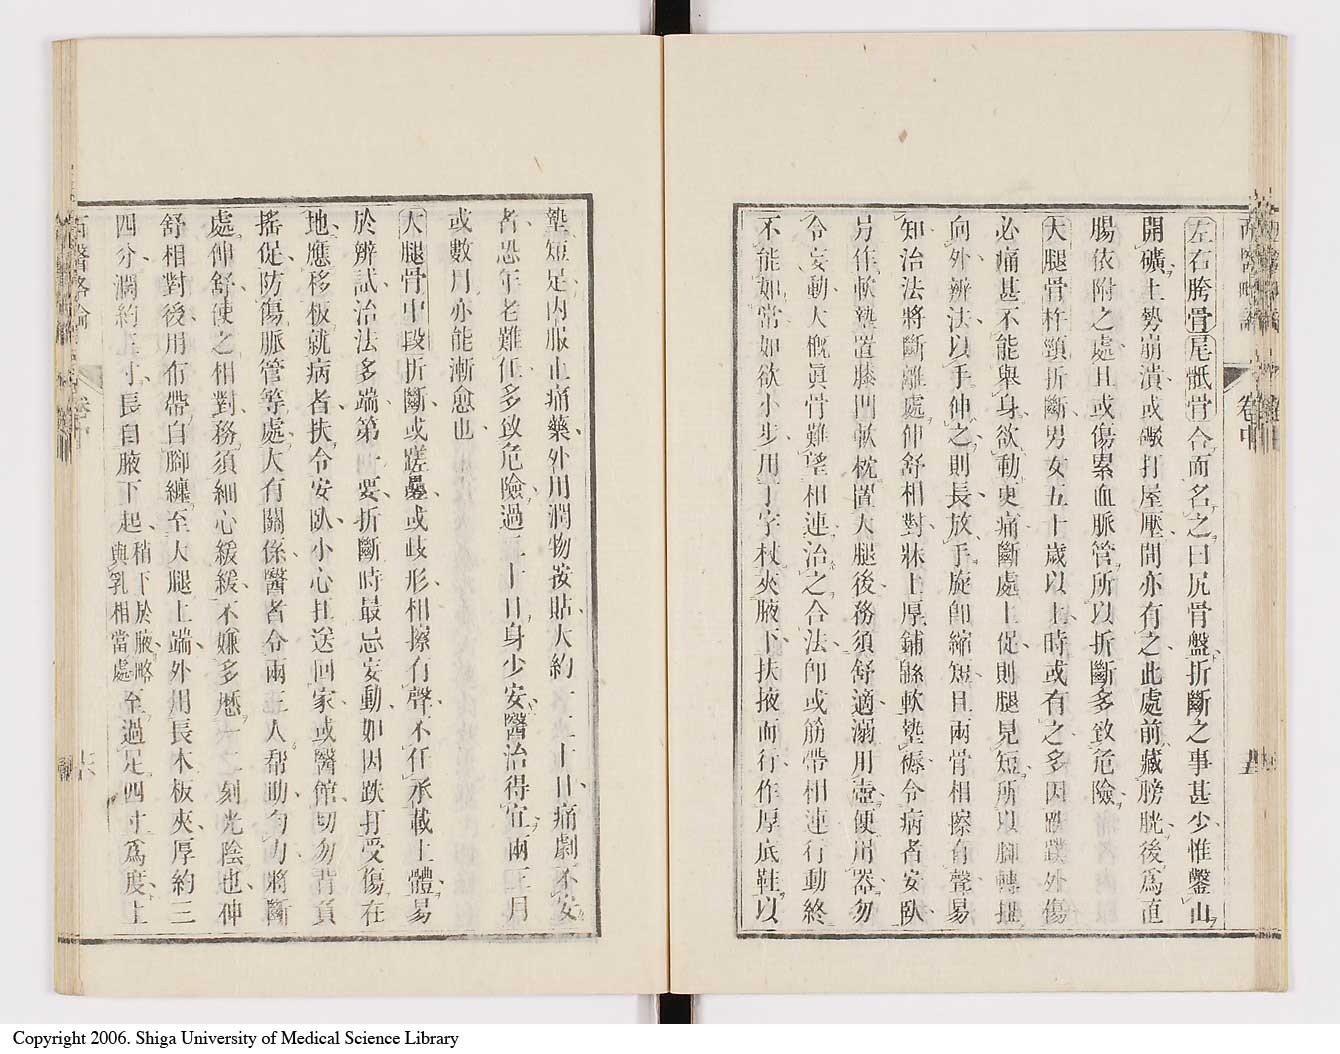 左右胯骨尾骶骨合而名之曰尻骨盤折斷之事甚少惟鑿山
開礦土勢崩潰或礮打屋壓間亦有之此處前藏膀胱後爲直
腸依附之處且或傷累血脈管所以折斷多致危險
大腿骨杵頸折斷男女五十歲以上時或有之多因跌蹼外傷
必痛甚不能舉身欲動更痛斷處上促則腿見短所以腳轉拙
向外辨法以手伸之則長放手旋卽縮短且兩骨相擦有聲易
知治法將斷離處伸舒相對牀上厚鋪綿軟墊褥令病者安臥
另作軟墊置膝凹軟枕置大腿後務須舒適溺用壺便用器勿
令妄動大槪眞骨難望相連治之合法卽或筋帶相連行動終
不能如常如欲小步用丁字杖夾腋下扶掖而行作厚底鞋以
卷中
墊短足內服止痛藥外用潤物蒌貼大約一二十日痛劇不安
者恐年老難任多致危險過二十日身少安醫治得宜兩三月
或數月亦能漸愈也
大腿骨中段折斷或蹉疊或歧形相擦有聲不任承載上體易
於辨試治法多端第一要折斷時最忌妄動如因跌打受傷在
地應移板就病者扶令安臥小心扛送回家或醫館切勿背負
搖促防傷脈管等處大有關係醫者令兩三人幇助勻力將斷
處伸舒使之相對務須細心緩緩不嫌多歷一二刻光陰也伸
舒相對後用布帶自腳纏至大腿上端外用長木板夾厚約三
四分濶約三寸長自腋下起稍下於腋略與乳相當處至過足四寸爲度上
西醫略論
Copyright 2006. Shiga University of Medical Science Library